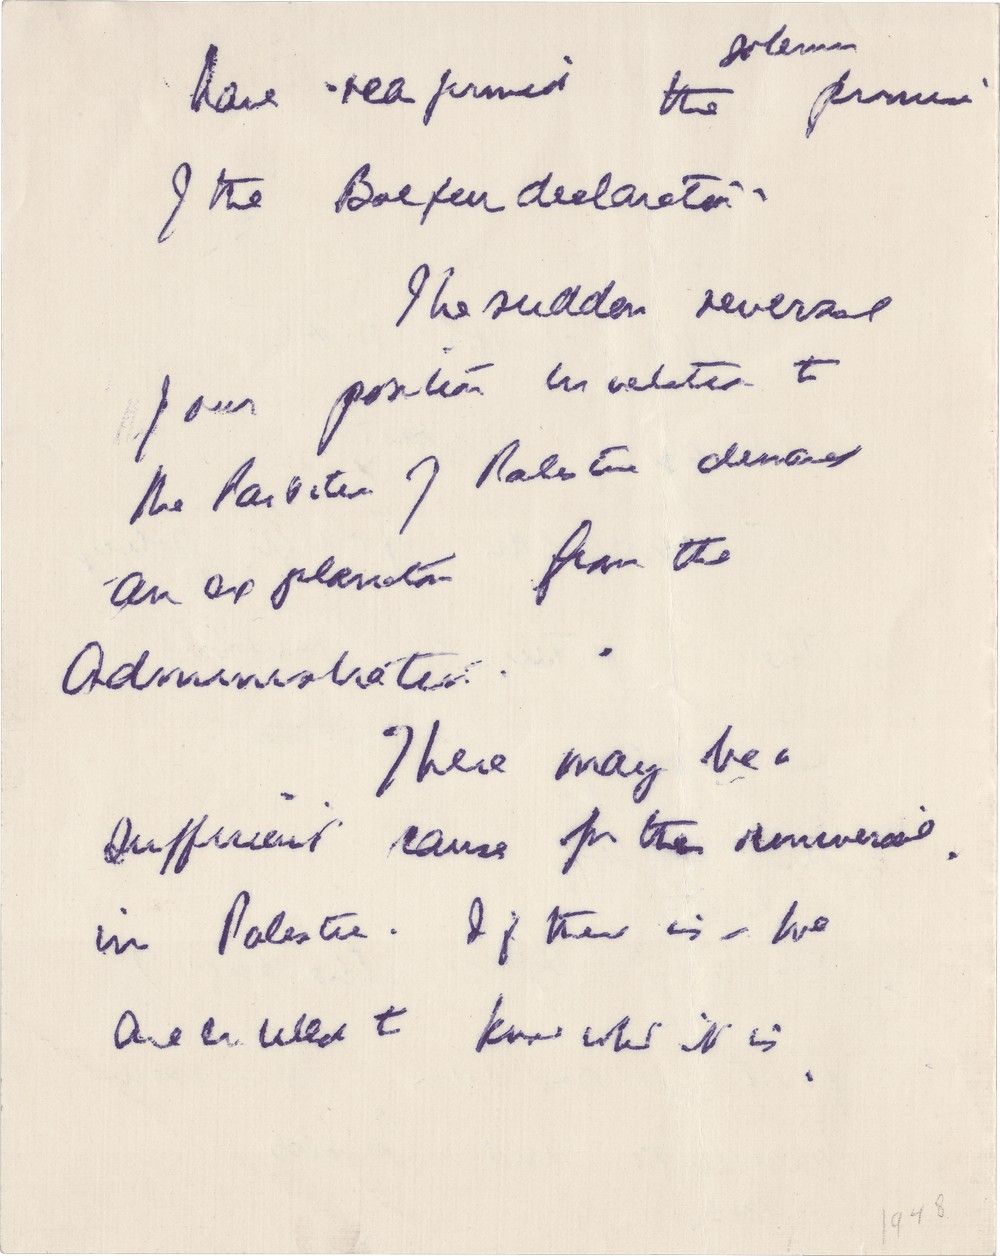 solemn
have reaffirmed the promise
of the Balfour declaration.
The sudden reversal
of our position in relation to
the Partition of Palestine demands
an explanation from the
Administration.
There may be a
sufficient cause for the
in Palestine. If there is - we
are entitled to know what it is.
1948